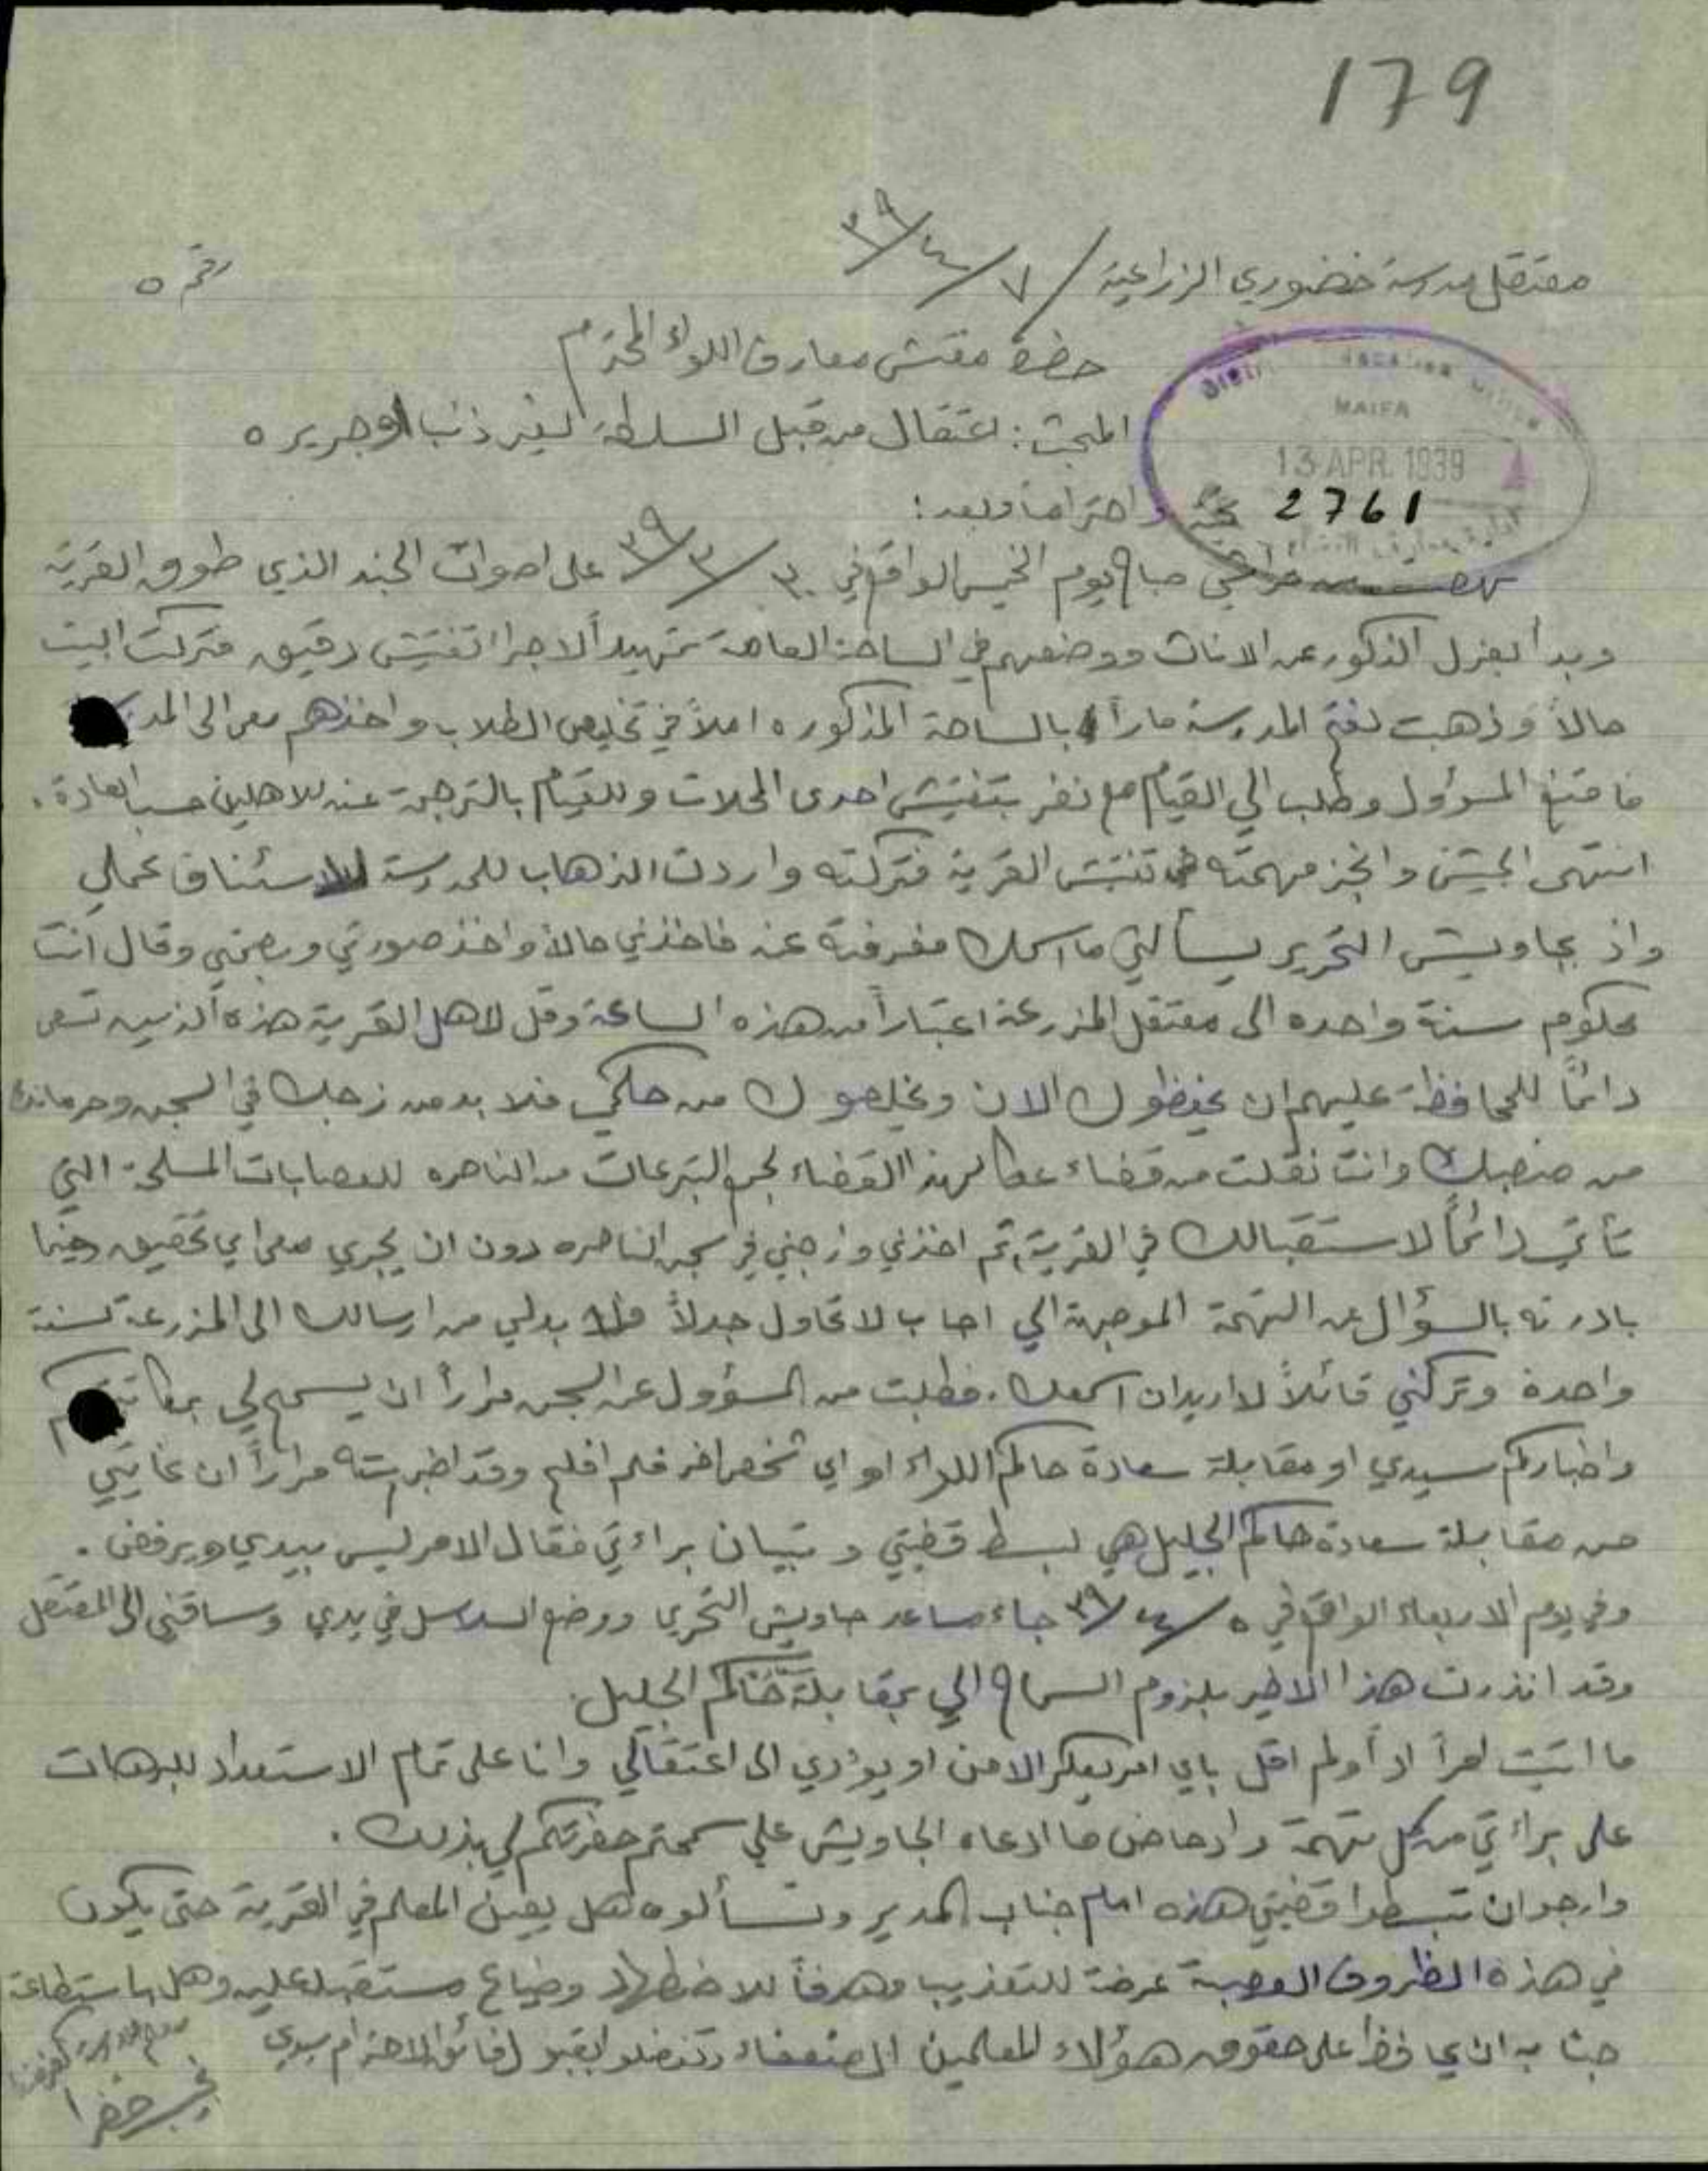 179
معتقل مدرسة خضوري الزراعية / ٧/٤/٣٩
رقم ٥
حضرة مفتش معارف اللواء المحترم
HAIFA
13 APR. 1939
المبحث: اعتقال من قبل السلطة لغير ذنب او جريره
2761
تحية واحتراما وبعد:
صباح يوم الخميس الواقع في ٣٠/٣/٣٩ على اصوات الجند الذي طوق القرية
وبدأ بعزل الذكور عن الاناث ووضعهم في الساحة العامة تمهيداً لاجراء تفتيش دقيق فتركت البيت
حالاً وذهبت لفتح المدرسة ماراً بالساحة المذكوره املاً في تخليص الطلاب واخذهم معي الى
فامتنع المسؤول وطلب الي القيام مع نفر بتفتيش احدى المحلات وللقيام بالترجمة عنه للاهلين حسب العادة.
انتهى الجيش وانجز مهمته في تفتيش القرية فتركته واردت الذهاب للمدرسة لاستئناف عملي
واذ بجاويش التحري يسألني ما اسمك فعرفته عنه فاخذني حالاً واخذ صورتي وبصمتي وقال انت
محكوم سنة واحده الى معتقل المزرعة اعتباراً من هذه الساعة وقل لاهل القرية هذه الذين تسعى
دائماً للمحافظة عليهم ان يحفظوك الان ويخلصوك من حكمي فلا بد من زجك في السجن وحرمانك
من منصبك وانت نقلت من قضاء عكا لهذا القضاء لجمع التبرعات من الناصره للعصابات المسلحة التي
تأتي دائماً لاستقبالك في القرية، ثم اخذني وزجني في سجن الناصره دون ان يجري معي اي تحقيق وحينما
بادرته بالسؤال عن التهمة الموجهة الي اجاب لا تحاول جدلاً فلا بد لي من ارسالك الى المزرعة لسنة
واحدة وتركني قائلاً لا اريد ان اسمعك. فطلبت من المسؤول عن السجن مراراً ان يسمح لي
واخباركم سيدي او مقابلة سعادة حاكم اللواء او اي شخص اخر فلم افلح وقد اخبرته مراراً ان غايتي
من مقابلة سعادة حاكم الجليل هي لبسط قضيتي وتبيان براءتي فقال الامر ليس بيدي ويرفض.
وفي يوم الاربعاء الواقع في ٥/٤/٣٩ جاء مساعد جاويش التحري ووضع السلاسل في يدي وساقني الى المعتقل
وقد انذرت هذا الاخير بلزوم السماح الي بمقابلة حاكم الجليل.
ما اتيت امراً اداً ولم اقل باي امر يعكر الامن او يؤدي الى اعتقالي وانا على تمام الاستعداد للبرهان
على براءتي من كل تهمة وادحاض ما ادعاه الجاويش علي سمحتم حضرتكم لي بذلك.
وارجو ان تبسطوا قضيتي هذه امام جناب المدير وتسألوه هل يعين المعلم في القرية حتى يكون
في هذه الظروف العصبية عرضة للتعذيب وهدفاً للاضطهاد وضياع مستقبله عليه وهل باستطاعة
جنابه ان يحافظ على حقوق هؤلاء المعلمين الضعفاء وتفضلوا بقبول فائق الاحترام سيدي